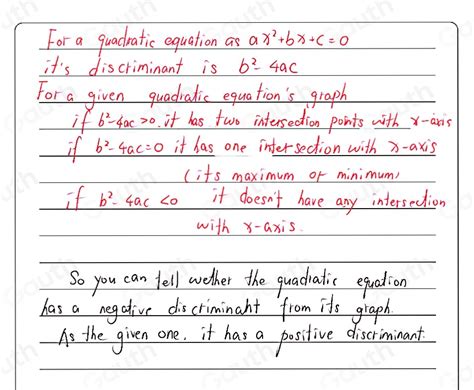 For a quadratic equation as ax²+bx+c=0
it's discriminant is b²-4ac
For a given quadratic equation's graph
if b²-4ac>0. it has two intersection points with x-axis
if b²-4ac=0 it has one intersection with x-axis
(its maximum or minimum)
if b²-4ac <0 it doesn't have any intersection
with x-axis.
So you can tell wether the quadratic equation
has a negative discriminant from its graph.
As the given one. it has a positive discriminant.